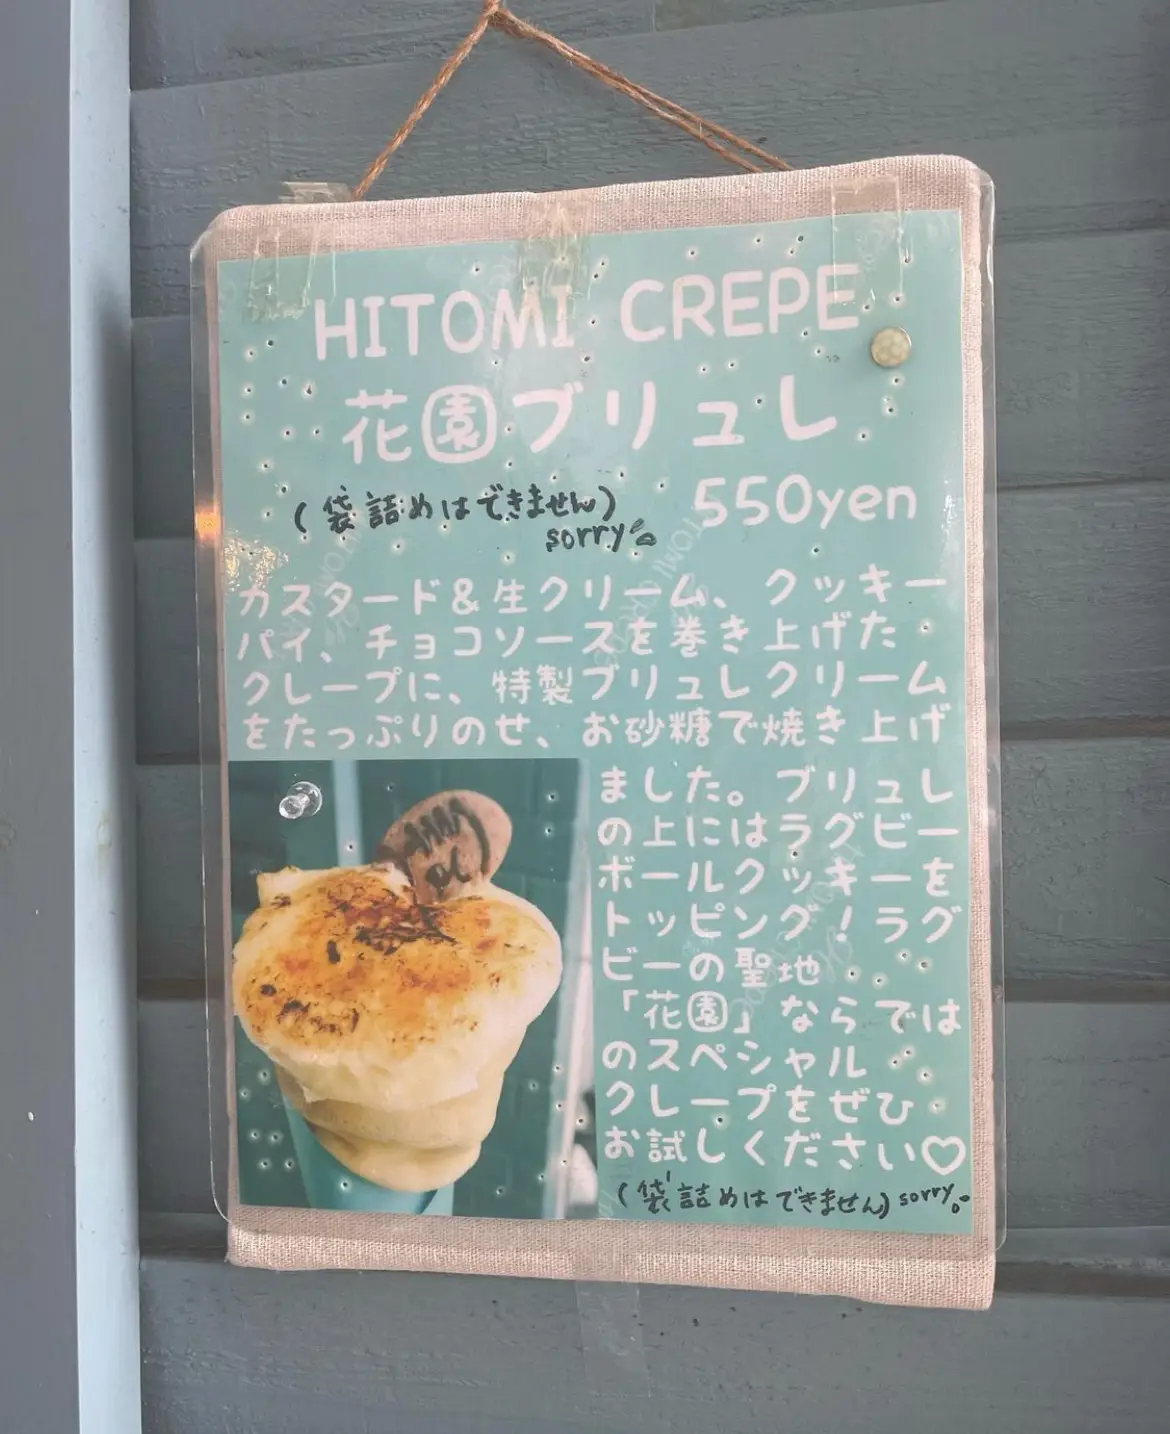 HITOMI CREPE
花園ブリュレ
(袋詰めはできません)
sorry
550yen
カスタード&生クリーム、クッキー
パイ、チョコソースを巻き上げた
クレープに、特製ブリュレクリーム
をたっぷりのせ、お砂糖で焼き上げ
ました。ブリュレ
の上にはラグビー
ボールクッキーを
トッピング!ラグ
ビーの聖地
「花園」ならでは
のスペシャル
クレープをぜひ
お試しください♡
(袋詰めはできません)sorry。